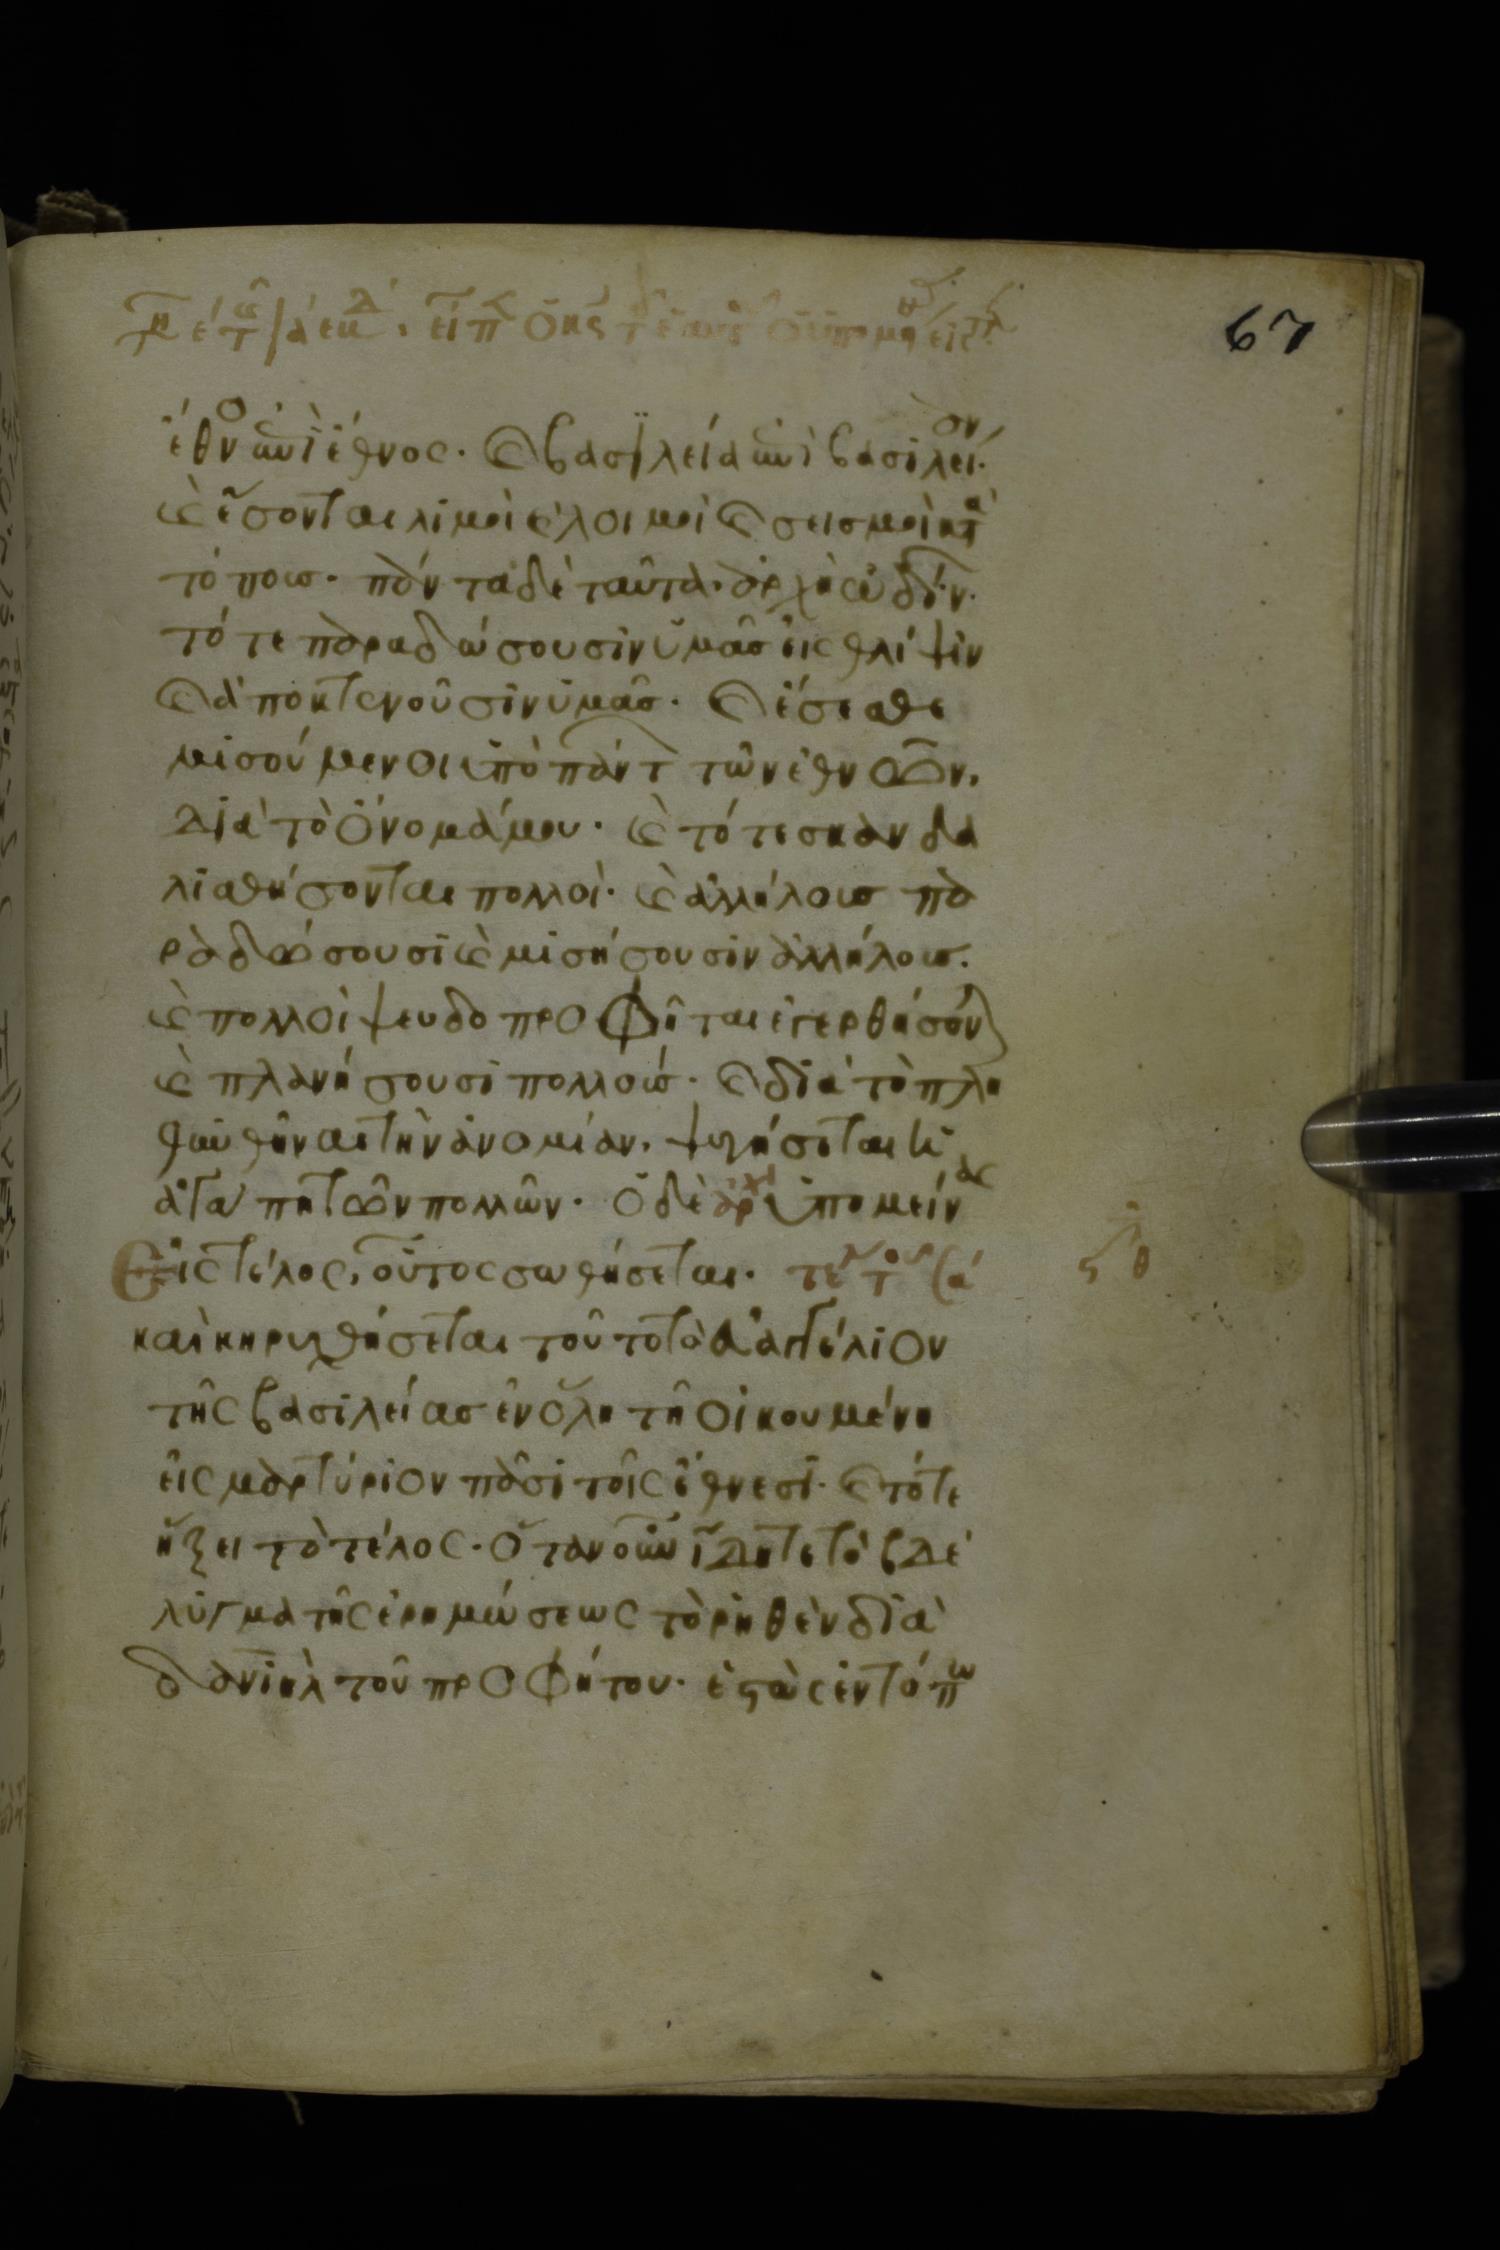 67
ἔθνος ἐπὶ ἔθνος· καὶ βασϊλεία ἐπὶ βασιλείαν·
καὶ ἔσονται λιμοὶ καὶ λοιμοὶ καὶ σεισμοὶ κατὰ
τόπους· πάντα δὲ ταῦτα· ἀρχὴ ὠδίν·
τότε παραδώσουσιν ὑμᾶς εἰς θλίψιν
καὶ ἀποκτενοῦσιν ὑμᾶς· καὶ ἔσεσθε
μισούμενοι ὑπὸ πάντ τῶν ἐθνῶν,
διὰ τὸ ὄνομά μου· καὶ τότε σκανδα
λισθήσονται πολλοί· καὶ ἀλλήλους πα
ραδώσουσι καὶ μισήσουσιν ἀλλήλους.
καὶ πολλοὶ ψευδοπροφῆται ἐγερθήσον
καὶ πλανήσουσι πολλούς· καὶ διὰ τὸ πλη
θυνθῆναι τὴν ἀνομίαν, ψυγήσεται ἡ
ἀγάπη τῶν πολλῶν· ὁ δὲ ἀρχ ὑπομείνας
εἰς τέλος, οὗτος σωθήσεται· τε τ
ϛ θ
καὶ κηρυχθήσεται τοῦτο τὸ εὐαγγέλιον
τῆς βασιλείας ἐν ὅλη τῆ οἰκουμένη
εἰς μαρτύριον πᾶσι τοῖς ἔθνεσι· καὶ τότε
ἥξει τὸ τέλος· ὅταν οὖν ἴδητε τὸ βδέ
λυγμα τῆς ἐρημώσεως τὸ ῥηθὲν διὰ
δανιὴλ τοῦ προφήτου· ἑστὼς ἐν τόπω